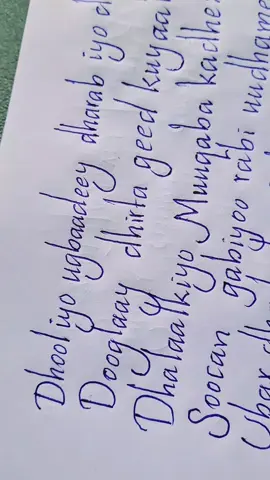 Dhool iyo ugbaadeey dharab iyo
Dooglaay dhirta geed kuyaal
Dhalaalkiyo Muuqaba kadhe
Soocan gabiyoo rabi uudhame